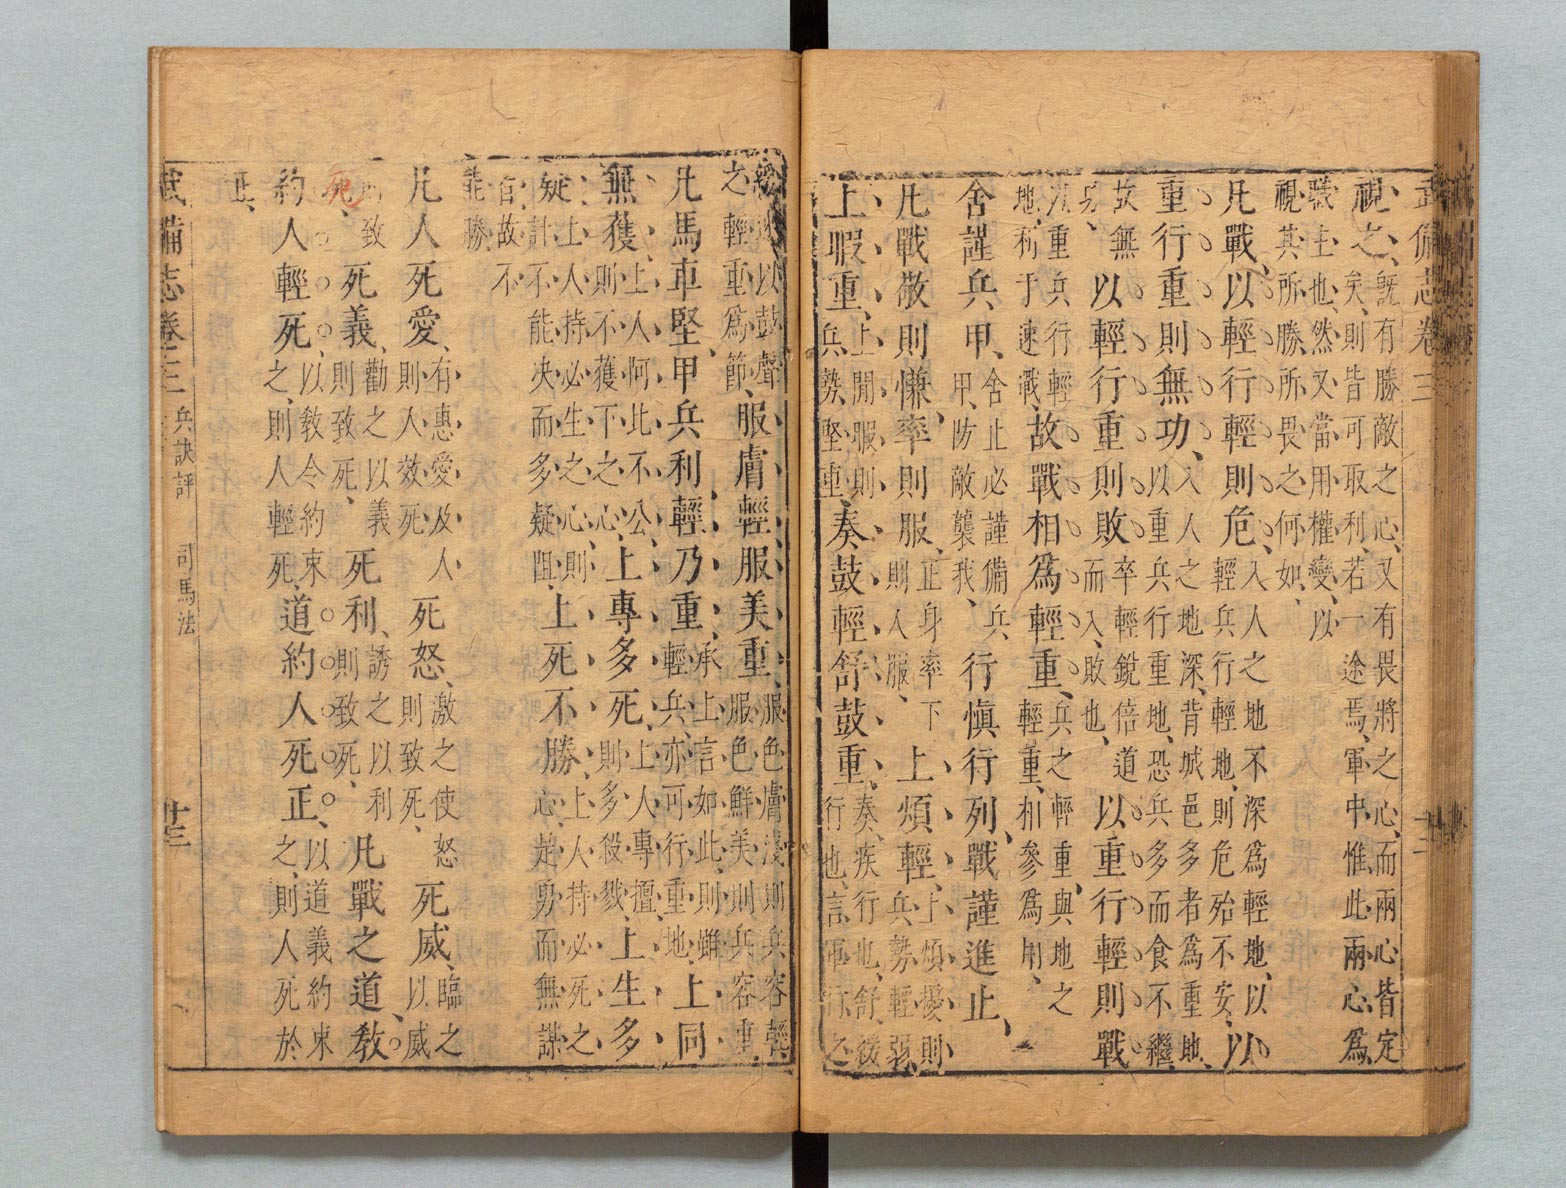 武備志卷三
視之、
既有勝敵之心、又有畏將之心、而兩心皆定
矣、則皆可取利、若一途焉、軍中惟此兩心爲
職主也、然又當用權變、以
視其所勝所畏之何如、
凡戰、以輕行輕則危、
入人之地不深爲輕地、以
輕兵行輕地、則危殆不安、
以
重行重則無功、
入人之地深、背城邑多者爲重地、
以重兵行重地、恐兵多而食不繼、
故無
功、
以輕行重則敗
卒輕銳倍道
而入、敗也、
以重行輕則戰
以重兵行輕
地、利于速戰、
故戰相爲輕重、
兵之輕重、與地之
輕重、相參爲用、
舍謹兵甲、
舍止必謹備兵
甲、防敵襲我、
行慎行列、戰謹進止、
凡戰敬則慊、率則服、
正身率下
則人服、
上煩輕、
上煩擾、則
兵勢輕弱、
上暇重、
上閒暇則
兵勢堅重、
奏鼓輕舒鼓重、
奏、疾行也、舒、緩
行也、言軍行之
緩急以鼓聲
之輕重爲節、
服膚輕服美重、
服色膚淺則兵容輕、
服色鮮美則兵容重、
凡馬車堅、甲兵利、輕乃重、
承上言如此、則雖
輕兵、亦可行重地、
上同
無獲、
上人阿比不公、
則不獲下之心、
上專多死、
上人專擅、
則多殺戮、
上生多
疑、
上人持必生之心、則
計不能决而多疑阻、
上死不勝、
上人持必死之
心、趍勇而無謀
者、故不
能勝
凡人死愛、
有惠愛及人
則人效死
死怒、
激之使怒
則致死、
死威、
臨之
以威
則致
死、
死義、
勸之以義
則致死、
死利、
誘之以利
則致死、
凡戰之道、教
約人輕死、
以教令約束
之、則人輕死、
道約人死正、
以道義約束
之、則人死於
正、
武備志卷三 兵訣評 司馬法 十三